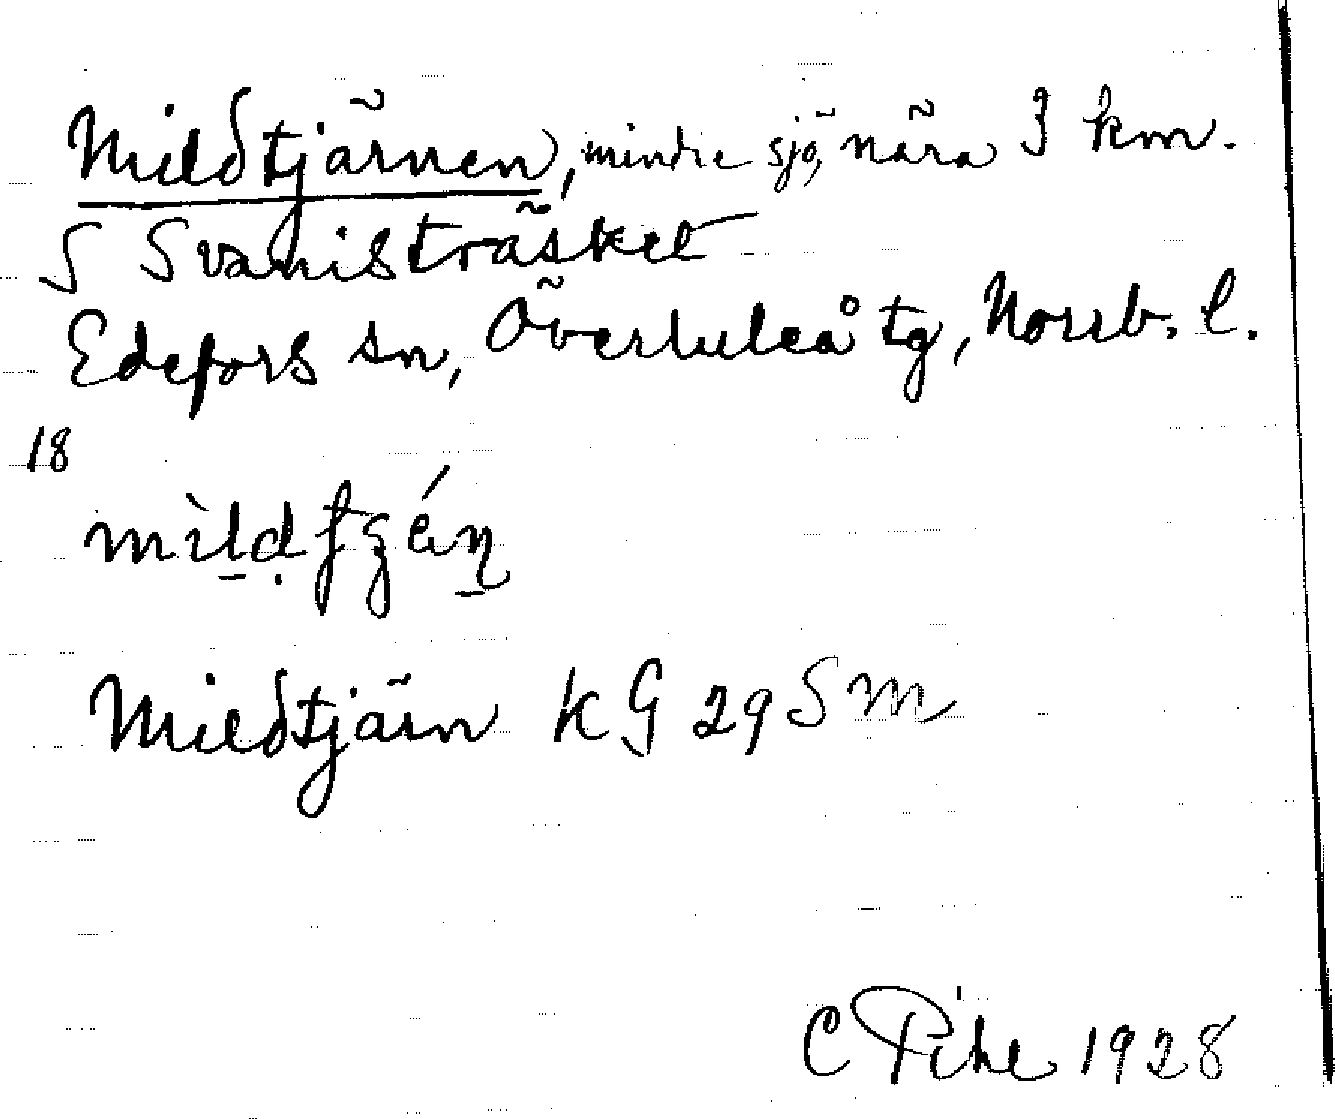 Mildtjärnen, mindre sjö, nära 3 km.
S Svanisträsket
Edefors sn, Överluleå tg, Norrb. l.
18
Mildtjärn KG 29 Sm
C Pihl 1928